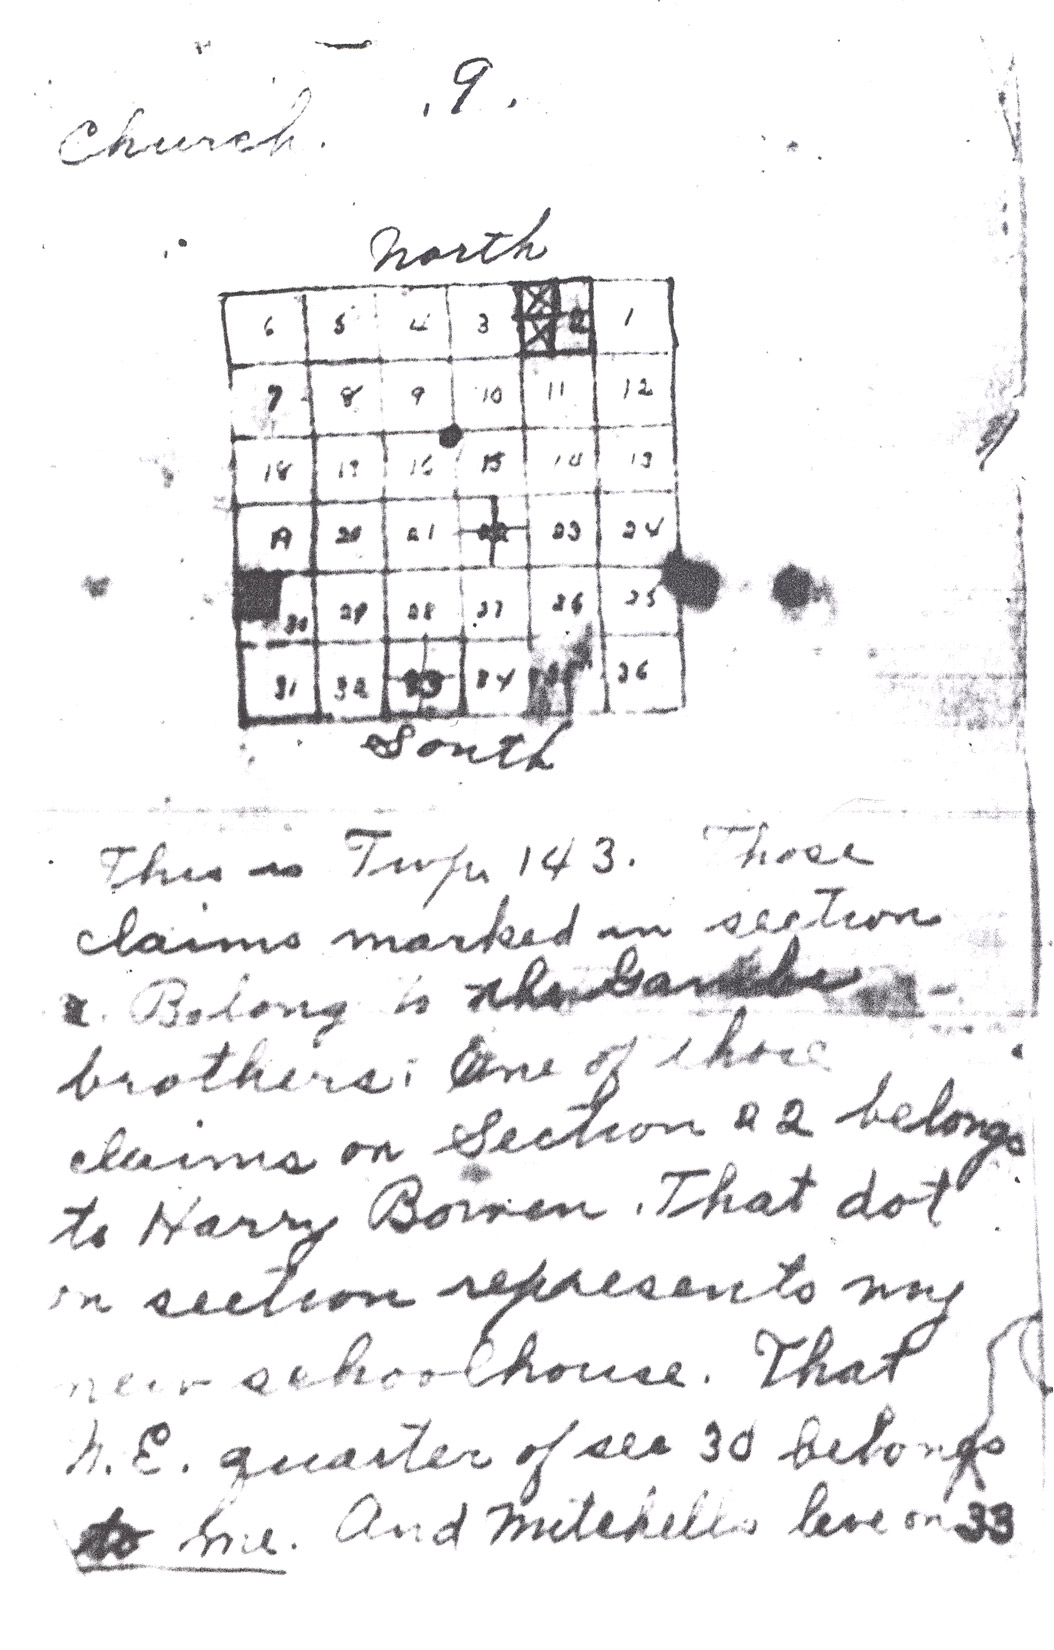 . 9 .
Church.
North
6 5 4 3 2 1
7 8 9 10 11 12
18 17 16 15 14 13
20 21 22 23 24
30 29 28 27 26 25
31 32 33 34 35 36
South
This is Twp. 143. Those
claims marked in section
2. Belong to the
brothers. One of those
claims on Section 22 belongs
to Harry Bowen. That dot
on section represents my
new schoolhouse. That
N.E. quarter of sec 30 belongs
to me. And Mitchells live on 33